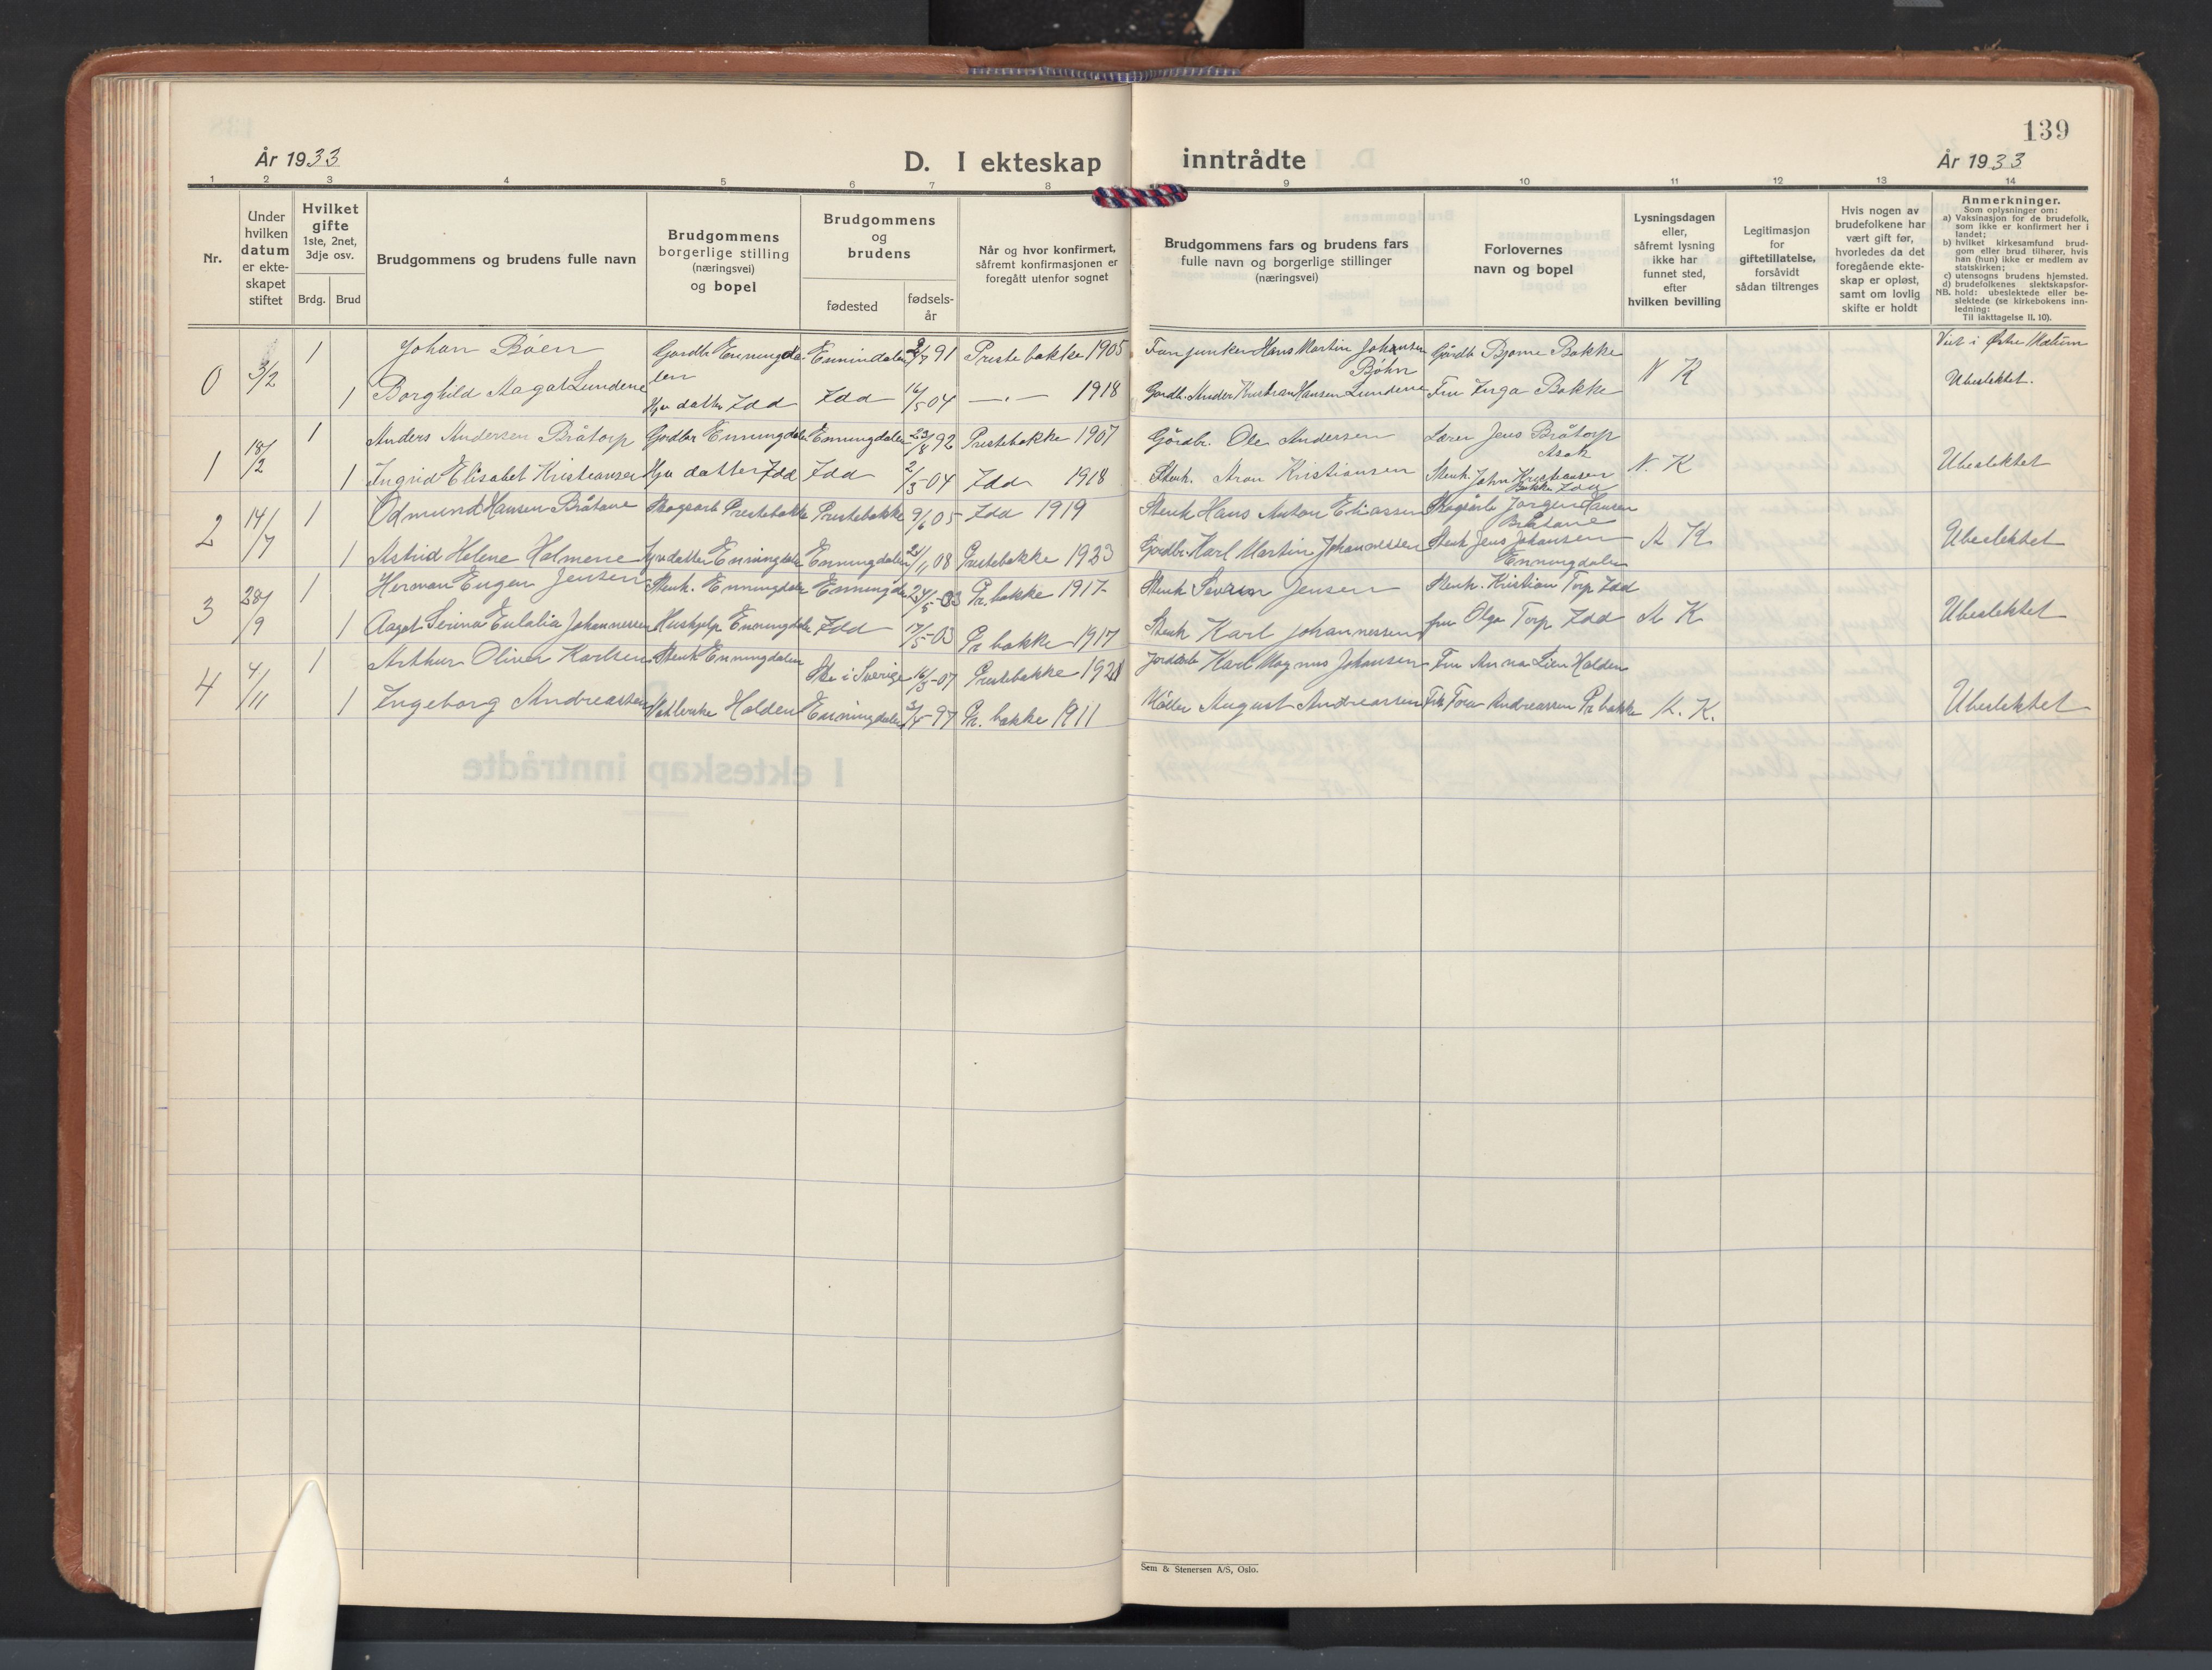 139
År 1933
D. I ekteskap inntrådte
År 1933
1 2 3 4 5 6 7 8 9 10 11 12 13 14
Nr.
Under
hvilken
datum
er ekte-
skapet
stiftet
Hvilket
gifte
1ste, 2net,
3dje osv.
Brdg. Brud
Brudgommens og brudens fulle navn
Brudgommens
borgerlige stilling
(næringsvei)
og bopel
Brudgommens
og
brudens
fødested
fødsels-
år
Når og hvor konfirmert,
såfremt konfirmasjonen er
foregått utenfor sognet
Brudgommens fars og brudens fars
fulle navn og borgerlige stillinger
(næringsvei)
Forlovernes
navn og bopel
Lysningsdagen
eller,
såfremt lysning
ikke har
funnet sted,
efter
hvilken bevilling
Legitimasjon
for
giftetillatelse,
forsåvidt
sådan tiltrenges
Hvis nogen av
brudefolkene har
vært gift før,
hvorledes da det
foregående ekte-
skap er opløst,
samt om lovlig
skifte er holdt
Anmerkninger.
Som oplysninger om:
a) Vaksinasjon for de brudefolk,
som ikke er konfirmert her i
landet;
b) hvilket kirkesamfund brud-
gom eller brud tilhører, hvis
han (hun) ikke er medlem av
statskirken;
c) utensogns brudens hjemsted.
d) brudefolkenes slektskapsfor-
NB. hold: ubeslektede eller be-
slektede (se kirkebokens inn-
ledning:
Til iakttagelse II, 10).
0 3/2 1 Johan Bøen Gardbr Enningda- Ennindalen 91 Prestebakke 1905 Fanejunker Hans Martin Johansen Gårdb Bjarne Bakke N K Viet i Østre
len Bøhn
1 Borghild Aagot Lundene Hjv datter Idd Idd 16/5 04 —"— 1918 Gardb. Anders Kristian Hansen Lundene Fru Inga Bakke Ubeslektet.
1 18/2 1 Anders Andersen Bråtorp Gardbr Enningdalen Enningdalen 92 Prestebakke 1907 Gårdbr. Ole Andersen Lærer Jens Bråtorp
Asak
1 Ingrid Elisabet Kristiansen Hjv datter Idd Idd 2/5 04 Idd 1918 Stenh. Aron Kristiansen Stenh. John Kristiansen N. K Ubeslektet
Bakke Idd
2 14/7 1 Odmund Hansen Bråtane Skogsarb Prestebakke Prestebakke 9/6 05 Idd 1919 Stenh Hans Anton Eliassen Skogsarb Jørgen Hansen
Bråtane
1 Astrid Helene Holmene Hjv datter Enningdalen Enningdalen 08 Prestebakke 1923 Gardbr. Karl Martin Johannessen Stenh Jens Johansen A K Ubeslektet
Enningdalen
3 28/9 1 Herman Eugen Jensen Stenh. Enningdalen Enningda 24/5-03 Pr. bakke 1917 Stenh Severin Jensen Stenh. Kristian Torp Idd
1 Aagot Serina Eulalia Johannessen Hushjelp Enningdalen Idd 17/5-03 Pr bakke 1917 Stenh Karl Johannessen fru Olga Torp Idd A K Ubeslektet
4 4/11 1 Arthur Oliver Karlsen Stenh Enningdalen i Sverige 16/3-07 Prestebakke 1921 Jordarb Karl Magnus Johansen Fru Anna Lien Halden
1 Ingeborg Andreassen Halden Enningdalen 97 Pr. bakke 1911 Møller August Andreassen Frk Tora Andreassen Pr bakke K. K. Ubeslektet
Sem & Stenersen A/S, Oslo.